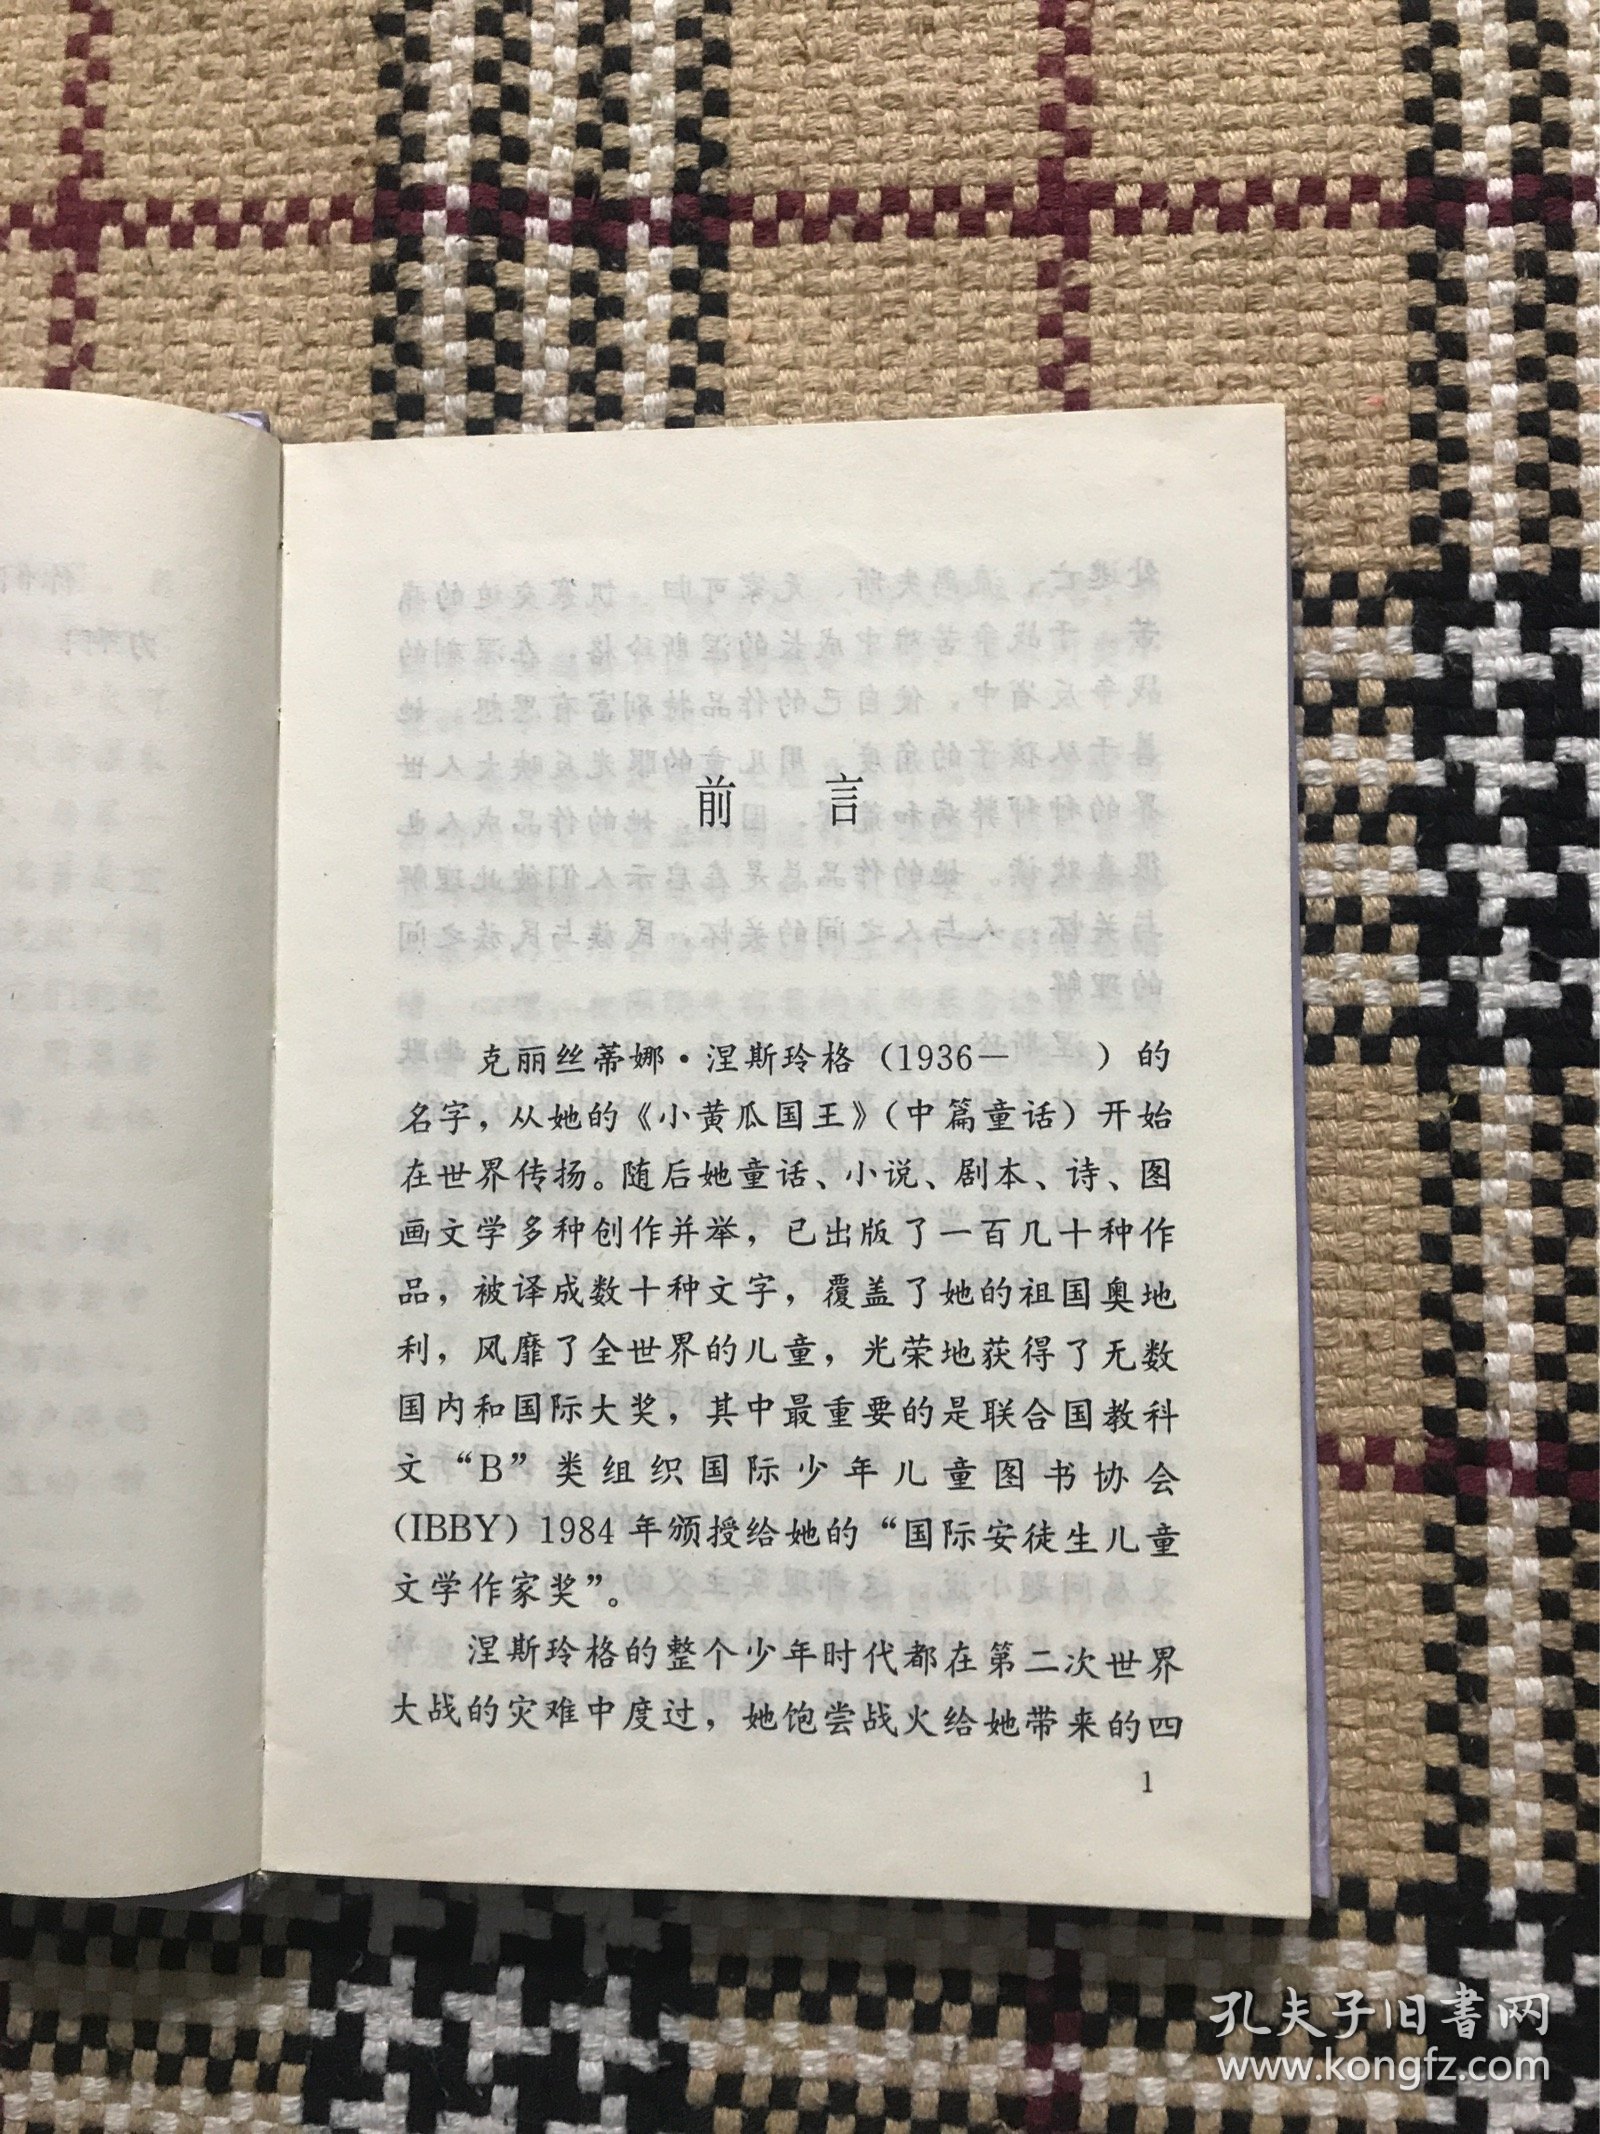 前言
克丽丝蒂娜·涅斯玲格（1936—　　）的
名字，从她的《小黄瓜国王》（中篇童话）开始
在世界传扬。随后她童话、小说、剧本、诗、图
画文学多种创作并举，已出版了一百几十种作
品，被译成数十种文字，覆盖了她的祖国奥地
利，风靡了全世界的儿童，光荣地获得了无数
国内和国际大奖，其中最重要的是联合国教科
文“B”类组织国际少年儿童图书协会
（IBBY）1984年颁授给她的“国际安徒生儿童
文学作家奖”。
涅斯玲格的整个少年时代都在第二次世界
大战的灾难中度过，她饱尝战火给她带来的四
1
孔夫子旧书网
www.kongfz.com